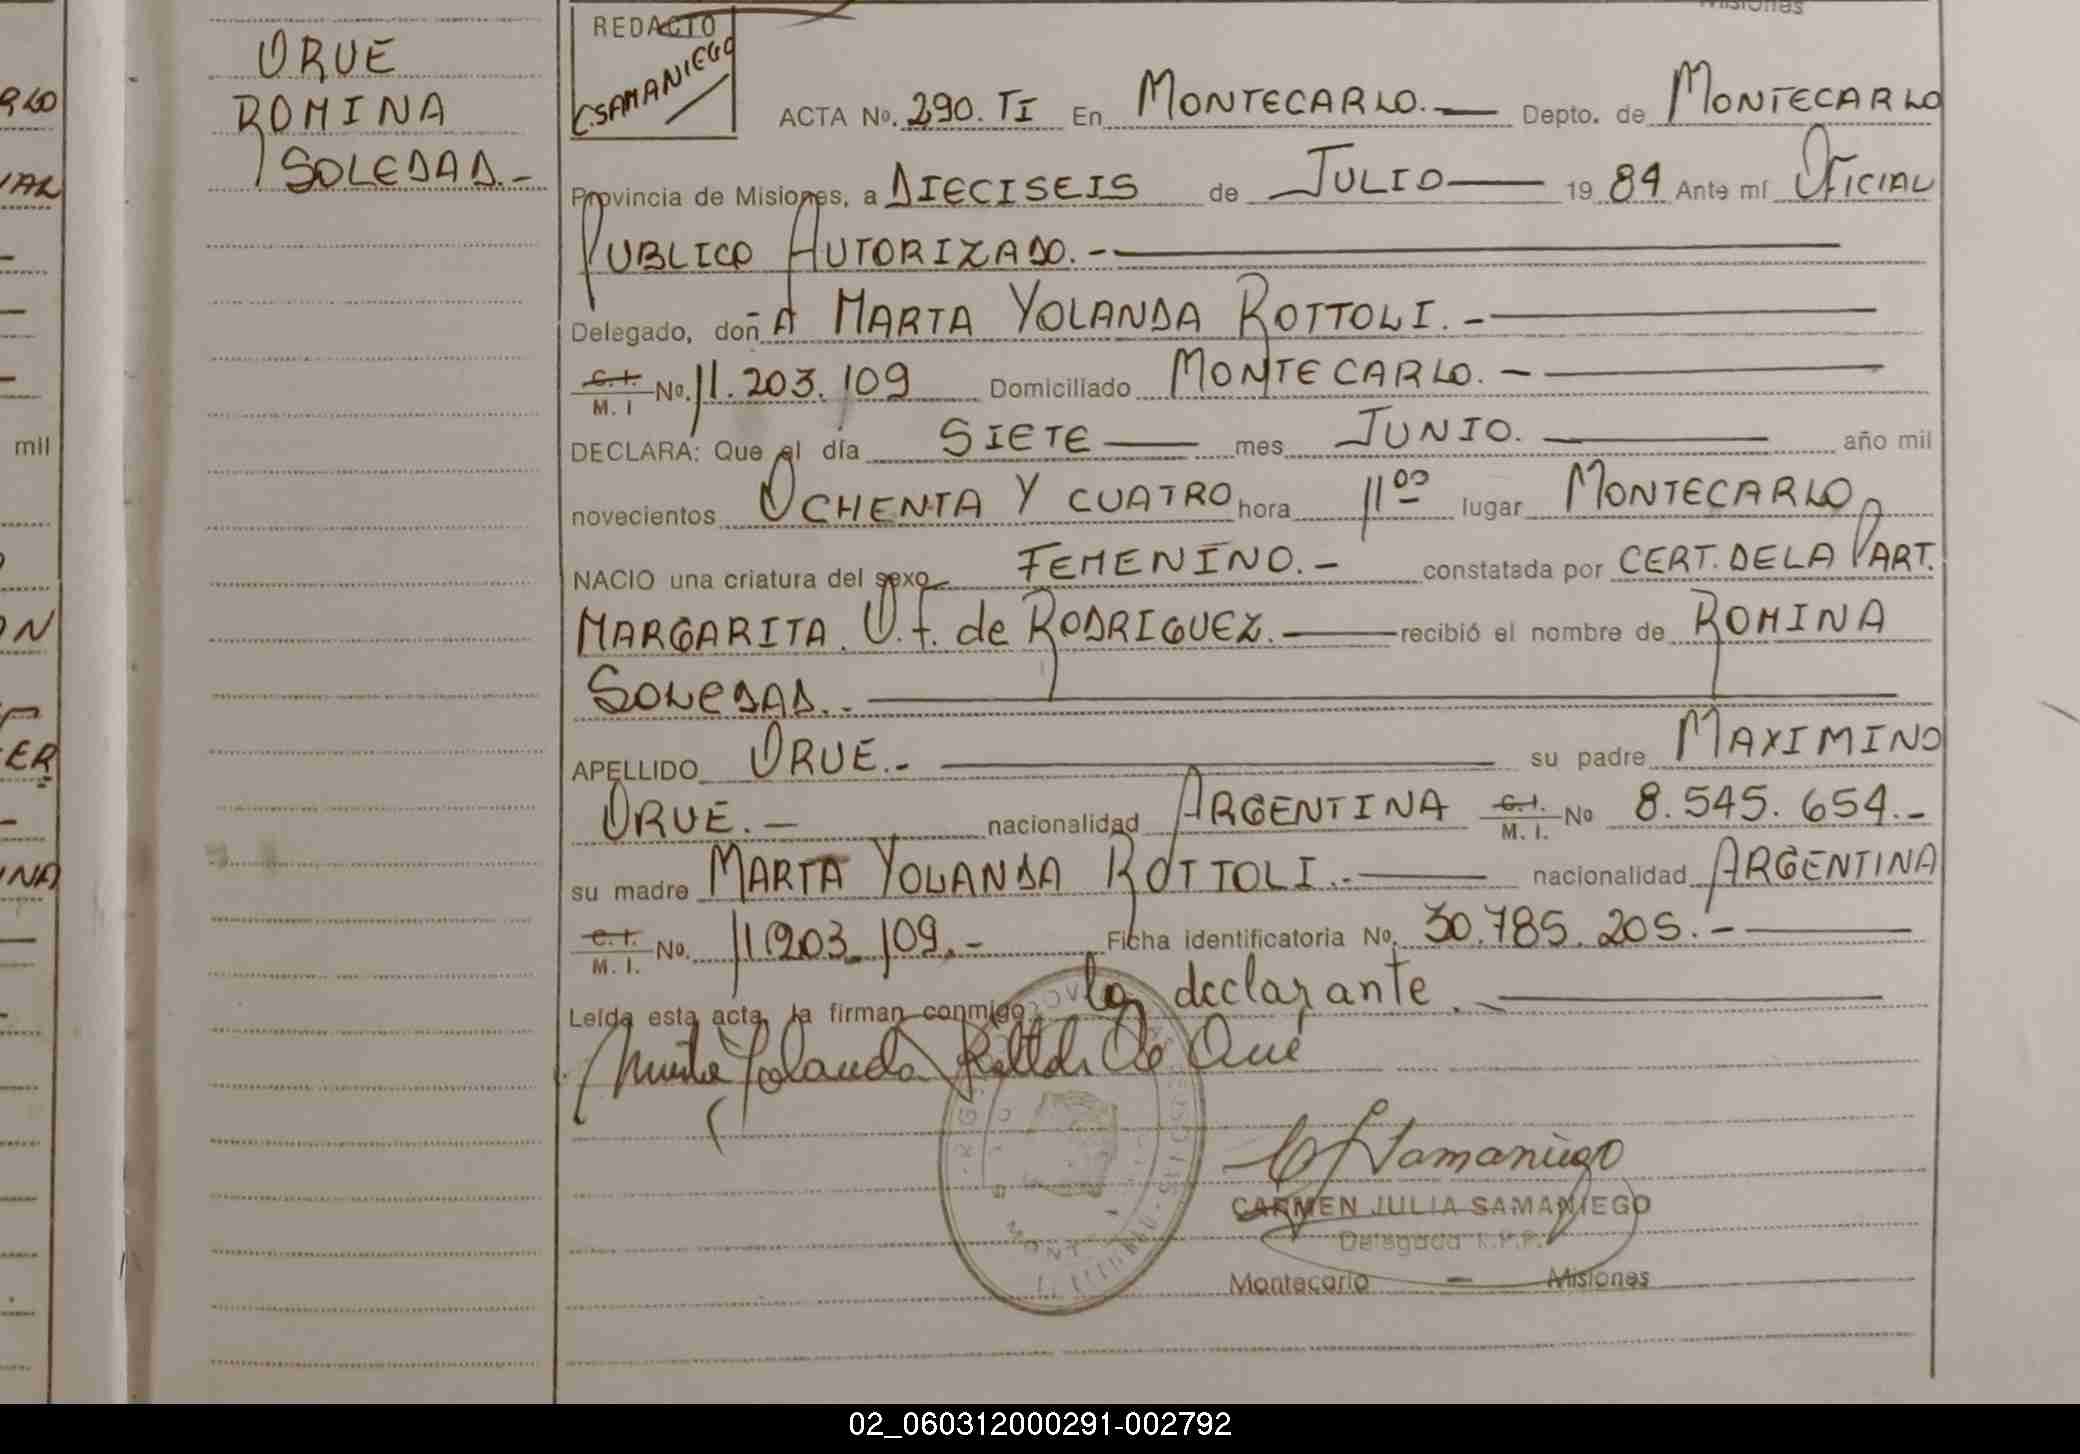 Misiones
REDACTO
C.SAMANIEGO
ORUE
ROMINA
SOLEDAD.-
ACTA No. 290. TI En MONTECARLO.— Depto. de MONTECARLO
Provincia de Misiones, a DIECISEIS de JULIO — 19 84 Ante mí OFICIAL
PUBLICO AUTORIZADO.-
Delegado, doñ A MARTA YOLANDA ROTTOLI.-
C.I. / M. I No. 11.203.109 Domiciliado MONTECARLO.-
DECLARA: Que el día SIETE — mes JUNIO. — año mil
novecientos OCHENTA Y CUATRO hora 11⁰⁰ lugar MONTECARLO
NACIO una criatura del sexo FEMENINO.- constatada por CERT. DE LA PART.
MARGARITA. O. f. de RODRIGUEZ. — recibió el nombre de ROMINA
SOLEDAD.-
APELLIDO ORUE.- su padre MAXIMINO
ORUE.- nacionalidad ARGENTINA C.I. / M. I. No 8.545.654.-
su madre MARTA YOLANDA ROTTOLI.- nacionalidad ARGENTINA
C.I. / M. I. No. 11.203.109.- Ficha identificatoria No. 30.785.205.-
Leída esta acta, la firman conmigo: la declarante.
Marta Yolanda Rottoli de Orue
C J Samaniego
CARMEN JULIA SAMANIEGO
Delegada R.P.P.
Montecarlo — Misiones
RLO
mil
ON
ER
INA
02_060312000291-002792